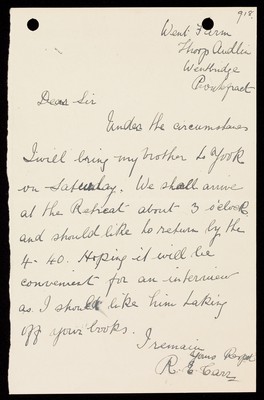 918
Went Farm
Thorp Audlin
Wentbridge
Pontefract
Dear Sir
Under the circumstances
I will bring my brother to York
on Saturday. We shall arrive
at the Retreat about 3 o'clock
and should like to return by the
4-40. Hoping it will be
convenient for an interview
as I should like him taking
off your books.
I remain
Yours Respt
R. E. Carr